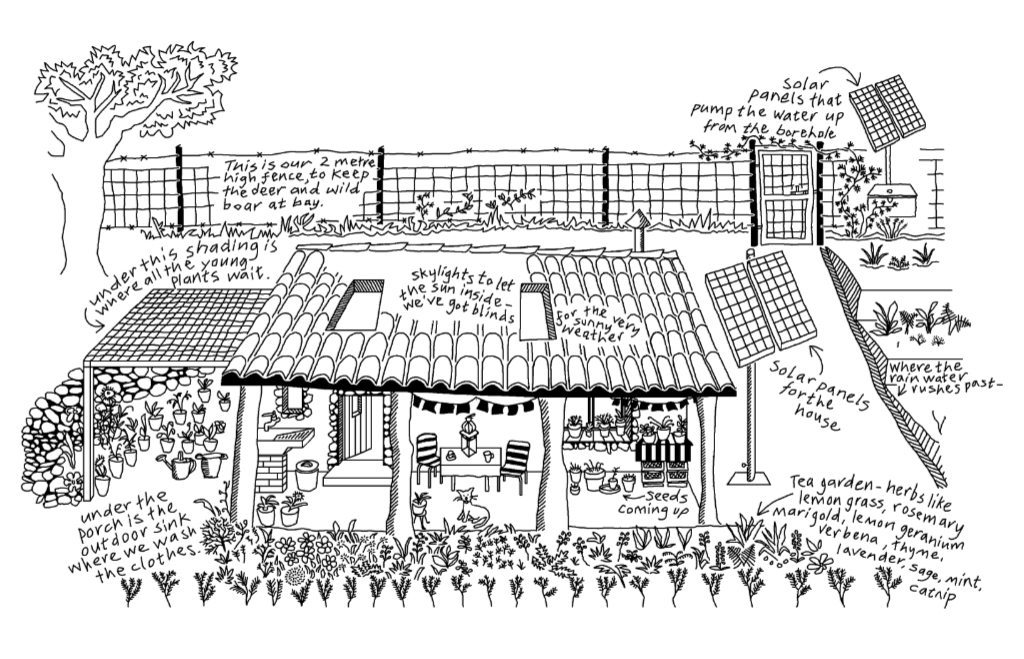 Solar
panels that
pump the water up
from the borehole
This is our 2 metre
high fence, to keep
the deer and wild
boar at bay.
under this shading is
where all the young
plants wait.
skylights to let
the sun inside-
we've got blinds
for the very
sunny
weather
Solar panels
for the
house
where the
rain water
rushes past-
seeds
coming up
under the
porch is the
outdoor sink
where we wash
the clothes.
Tea garden-herbs like
lemon grass, rosemary
marigold, lemon geranium
verbena, thyme,
lavender, sage, mint,
catnip